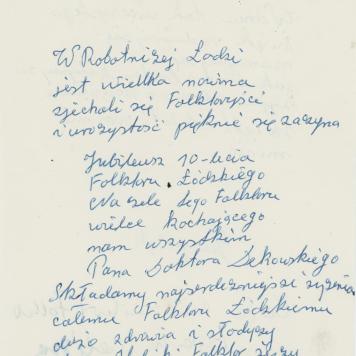 W Robotniżej Łodzi
jest wielka nowina
zjechali się Folkloryści
i uroczystość pięknie się zaczyna
Jubileusz 10-lecia
Folkloru Łódzkiego
Na czele tego Folkloru
wielce kochającego
nam wszystkim
Pana Doktora Dekowskiego
Składamy najserdeczniejsze życzenia
całemu Folkloru Łódzkiemu
dużo zdrowia i słodyczy
Folklor